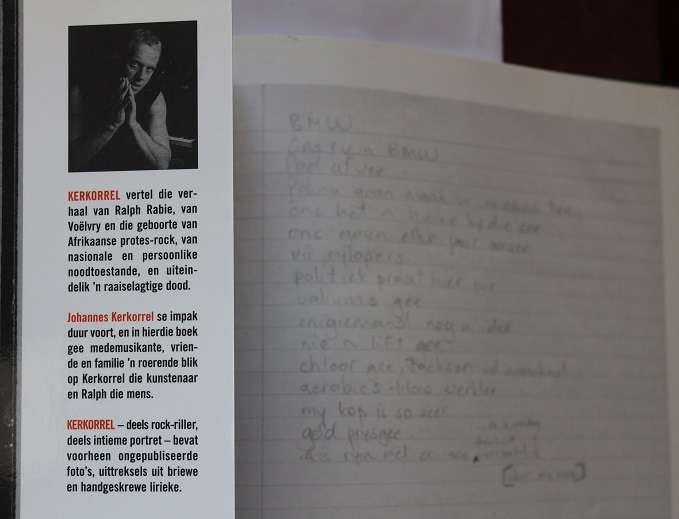 KERKORREL vertel die ver-
haal van Ralph Rabie, van
Voëlvry en die geboorte van
Afrikaanse protes-rock, van
nasionale en persoonlike
noodtoestande, en uitein-
delik 'n raaiselagtige dood.
Johannes Kerkorrel se impak
duur voort, en in hierdie boek
gee medemusikante, vrien-
de en familie 'n roerende blik
op Kerkorrel die kunstenaar
en Ralph die mens.
KERKORREL – deels rock-riller,
deels intieme portret – bevat
voorheen ongepubliseerde
foto's, uittreksels uit briewe
en handgeskrewe lirieke.
BMW
Ons ry n BMW
ons het n huis by die see
ons elke jaar
politiek praat hier nie
valiums gee
nog n idee
nie 'n lift gee
my kop is so seer